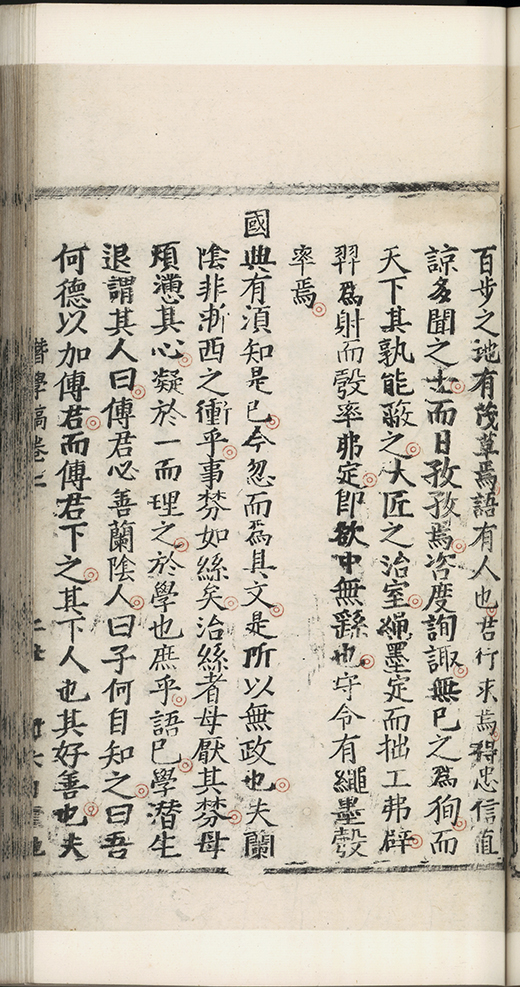 百步之地有茂草焉語有人也君行求焉得忠信直
諒多聞之士而日孜孜焉咨度詢諏無已之為狥而
天下其孰能蔽之大匠之治室繩墨定而拙工弗辟
羿為射而彀率弗定即欲中無繇也守令有繩墨彀
率焉
國典有須知是已今忽而為具文是所以無政也夫蘭
陰非浙西之衝乎事棼如絲矣治絲者毋厭其棼毋
煩懣其心凝於一而理之於學也庶乎語已學潜生
退謂其人曰傅君必善蘭陰人曰子何自知之曰吾
何德以加傅君而傅君下之其下人也其好善也夫
潛學稿卷二